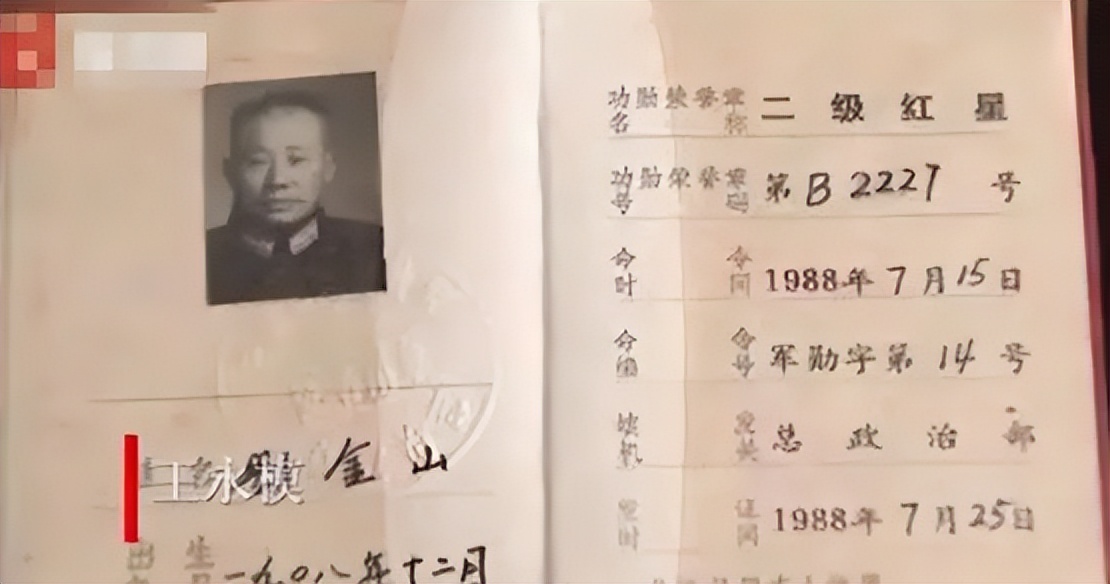 金山
王永桢
出生
一九〇八年十二月
功勋荣誉章
名称
二级红星
功勋荣誉章
号码
第B2227号
命令
时间
1988年7月15日
命令
编号
军勋字第14号
颁发
机关
总政治部
发证
时间
1988年7月25日